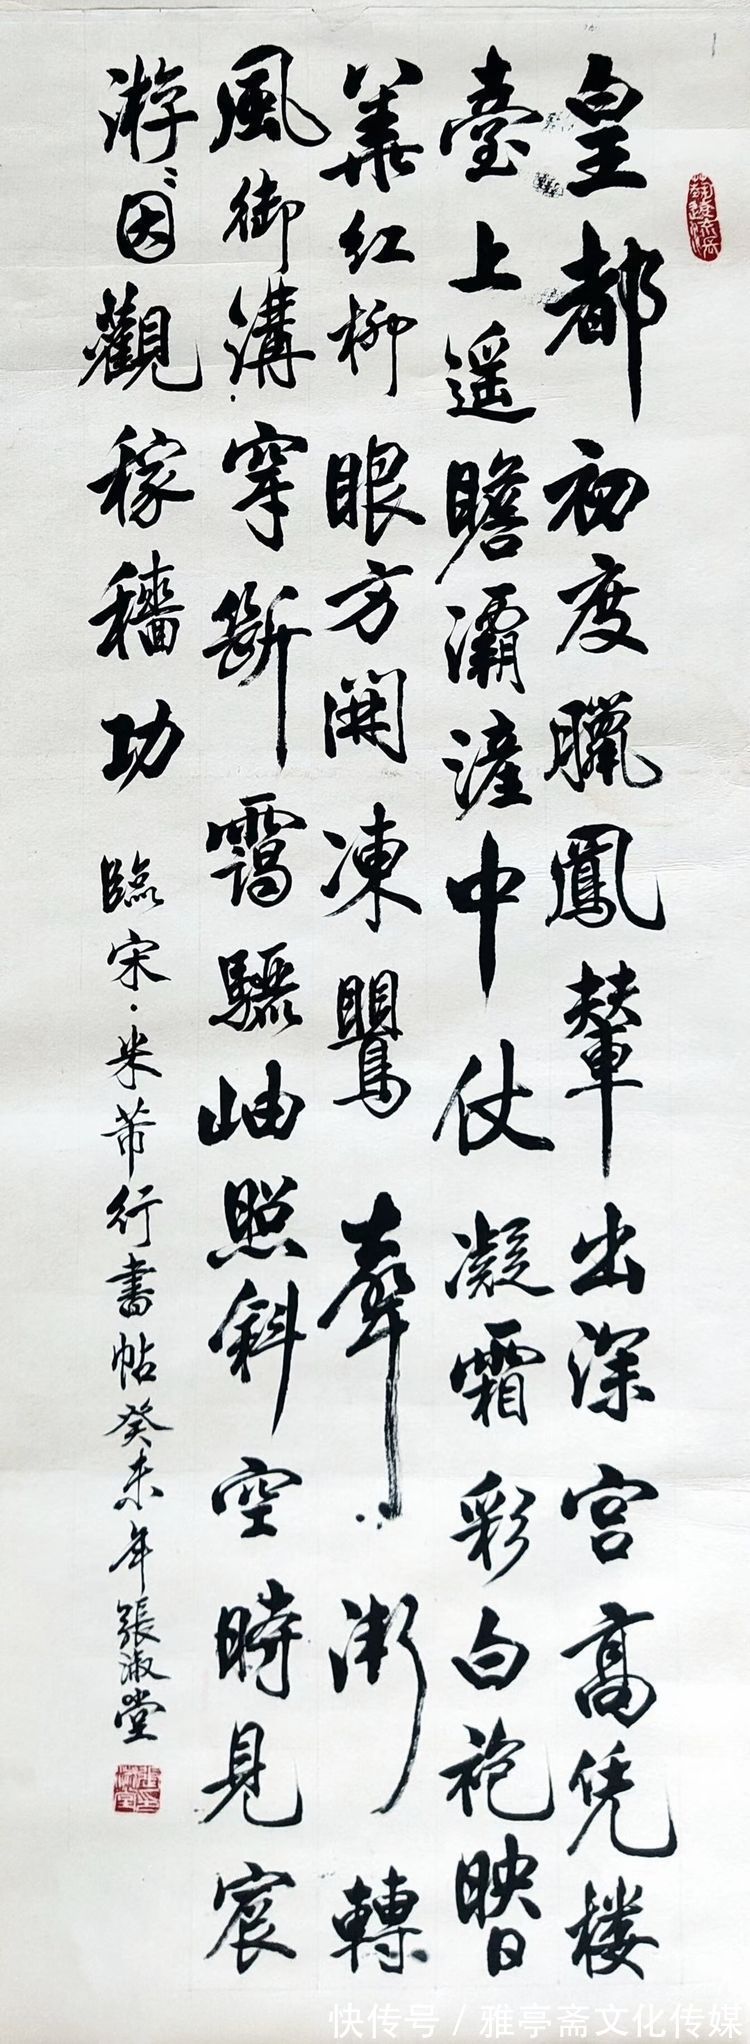 皇都初度臘鳳輦出深宮高凭楼
臺上遥瞻灞滻中仗凝霜彩白袍映日
華紅柳眼方開凍鸎聲漸轉
風御溝穿斷靄驪岫照斜空時見宸
游:因觀稼穡功
臨宋·米芾行書帖癸未年張淑堂
快传号/雅亭斋文化传媒